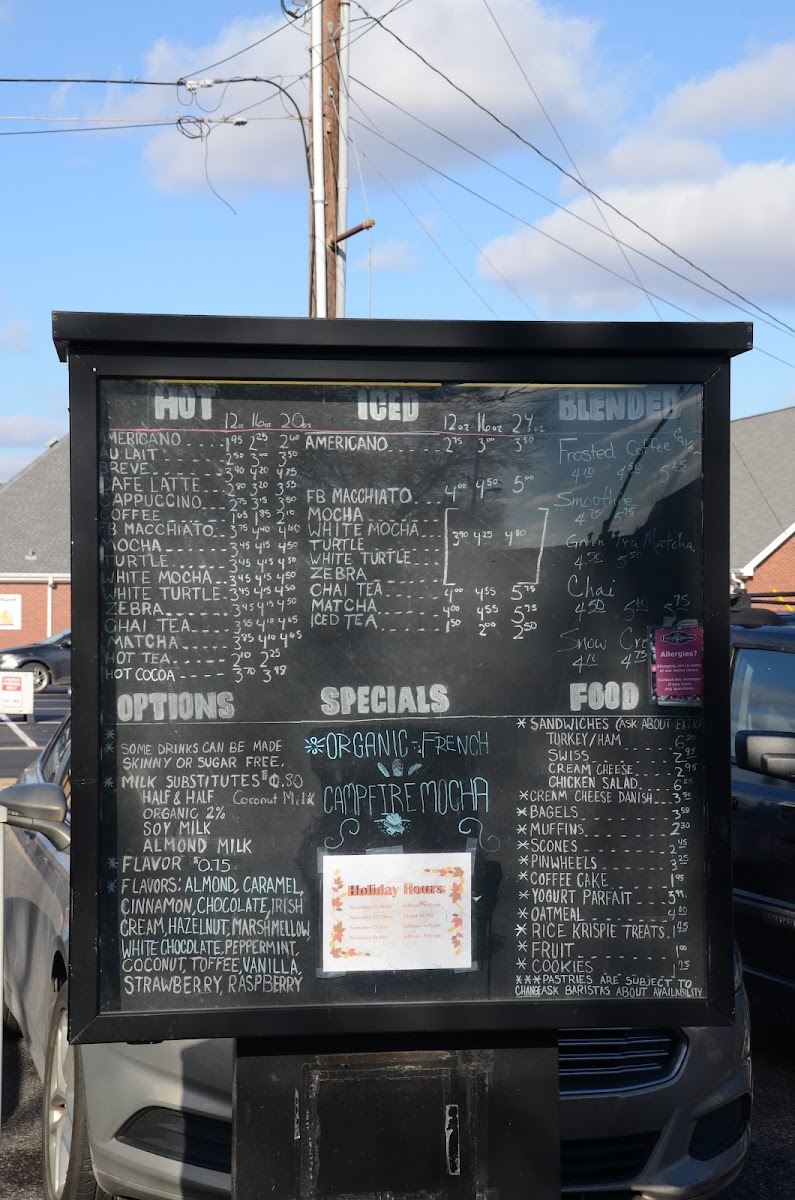 HOT
12oz 16oz 20oz
AMERICANO 1.95 2.25 2.60
AU LAIT 2.50 3.00 3.50
BREVE 3.90 4.20 4.75
CAFE LATTE 2.80 3.20 3.55
CAPPUCCINO 2.75 3.25 3.50
COFFEE 1.65 1.85 2.10
FB MACCHIATO 3.75 4.40 4.60
MOCHA 3.45 4.15 4.50
TURTLE 3.45 4.15 4.50
WHITE MOCHA 3.45 4.15 4.50
WHITE TURTLE 3.45 4.15 4.50
ZEBRA 3.45 4.15 4.50
CHAI TEA 3.85 4.10 4.65
MATCHA 3.85 4.10 4.65
HOT TEA 2.10 2.25
HOT COCOA 3.70 3.95
ICED
12oz 16oz 24oz
AMERICANO 2.75 3.00 3.50
FB MACCHIATO 4.00 4.50 5.00
MOCHA
WHITE MOCHA 3.90 4.25 4.80
TURTLE
WHITE TURTLE
ZEBRA
CHAI TEA 4.00 4.55 5.75
MATCHA 4.00 4.55 5.75
ICED TEA 1.50 2.00 2.50
BLENDED
Frosted Coffee
4.10 4.50 5.25
Smoothie
4.75 5.75
Green Tea Matcha
4.50 5.50
Chai
4.50 5.10 5.75
Snow Cre
4.10 4.75
Allergies?
OPTIONS
* SOME DRINKS CAN BE MADE
SKINNY OR SUGAR FREE.
* MILK SUBSTITUTES $0.80
HALF & HALF Coconut Milk
ORGANIC 2%
SOY MILK
ALMOND MILK
* FLAVOR $0.75
* FLAVORS: ALMOND, CARAMEL,
CINNAMON, CHOCOLATE, IRISH
CREAM, HAZELNUT, MARSHMELLOW
WHITE CHOCOLATE, PEPPERMINT,
COCONUT, TOFFEE, VANILLA,
STRAWBERRY, RASPBERRY
SPECIALS
*ORGANIC FRENCH
CAMPFIRE MOCHA
Holiday Hours
FOOD
* SANDWICHES (ASK ABOUT EXTRA
TURKEY/HAM 6.25
SWISS 2.95
CREAM CHEESE 2.95
CHICKEN SALAD 6.25
* CREAM CHEESE DANISH 3.50
* BAGELS 3.50
* MUFFINS 2.30
* SCONES 2.45
* PINWHEELS 3.25
* COFFEE CAKE 1.95
* YOGURT PARFAIT 3.99
* OATMEAL 4.10
* RICE KRISPIE TREATS 1.95
* FRUIT 1.00
* COOKIES 1.75
***PASTRIES ARE SUBJECT TO
CHANGE ASK BARISTAS ABOUT AVAILABILITY